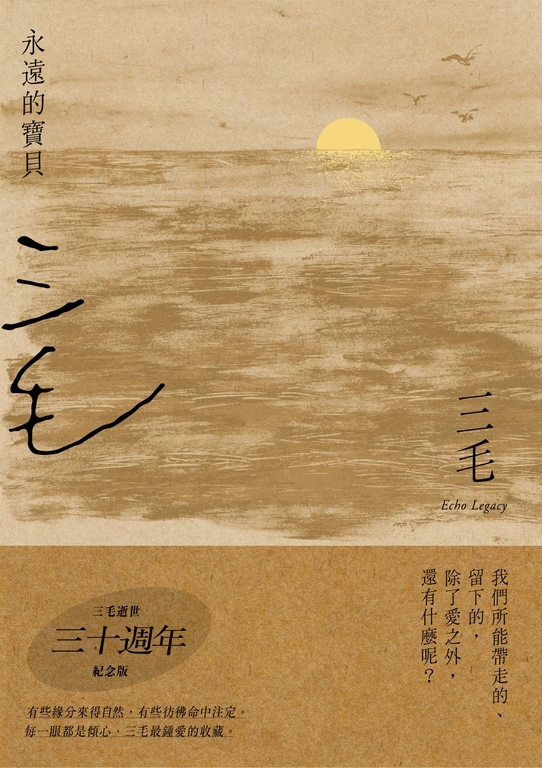 永遠的寶貝
三毛
三毛
Echo Legacy
我們所能帶走的、
留下的，
除了愛之外，
還有什麼呢？
三毛逝世
三十週年
紀念版
有些緣分來得自然，有些彷彿命中注定。
每一眼都是傾心，三毛最鍾愛的收藏。